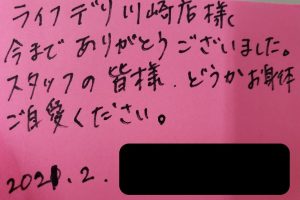 ライフデリ川崎店様、
今までありがとうございました。
スタッフの皆様、どうかお身体
ご自愛ください。
2021.2.